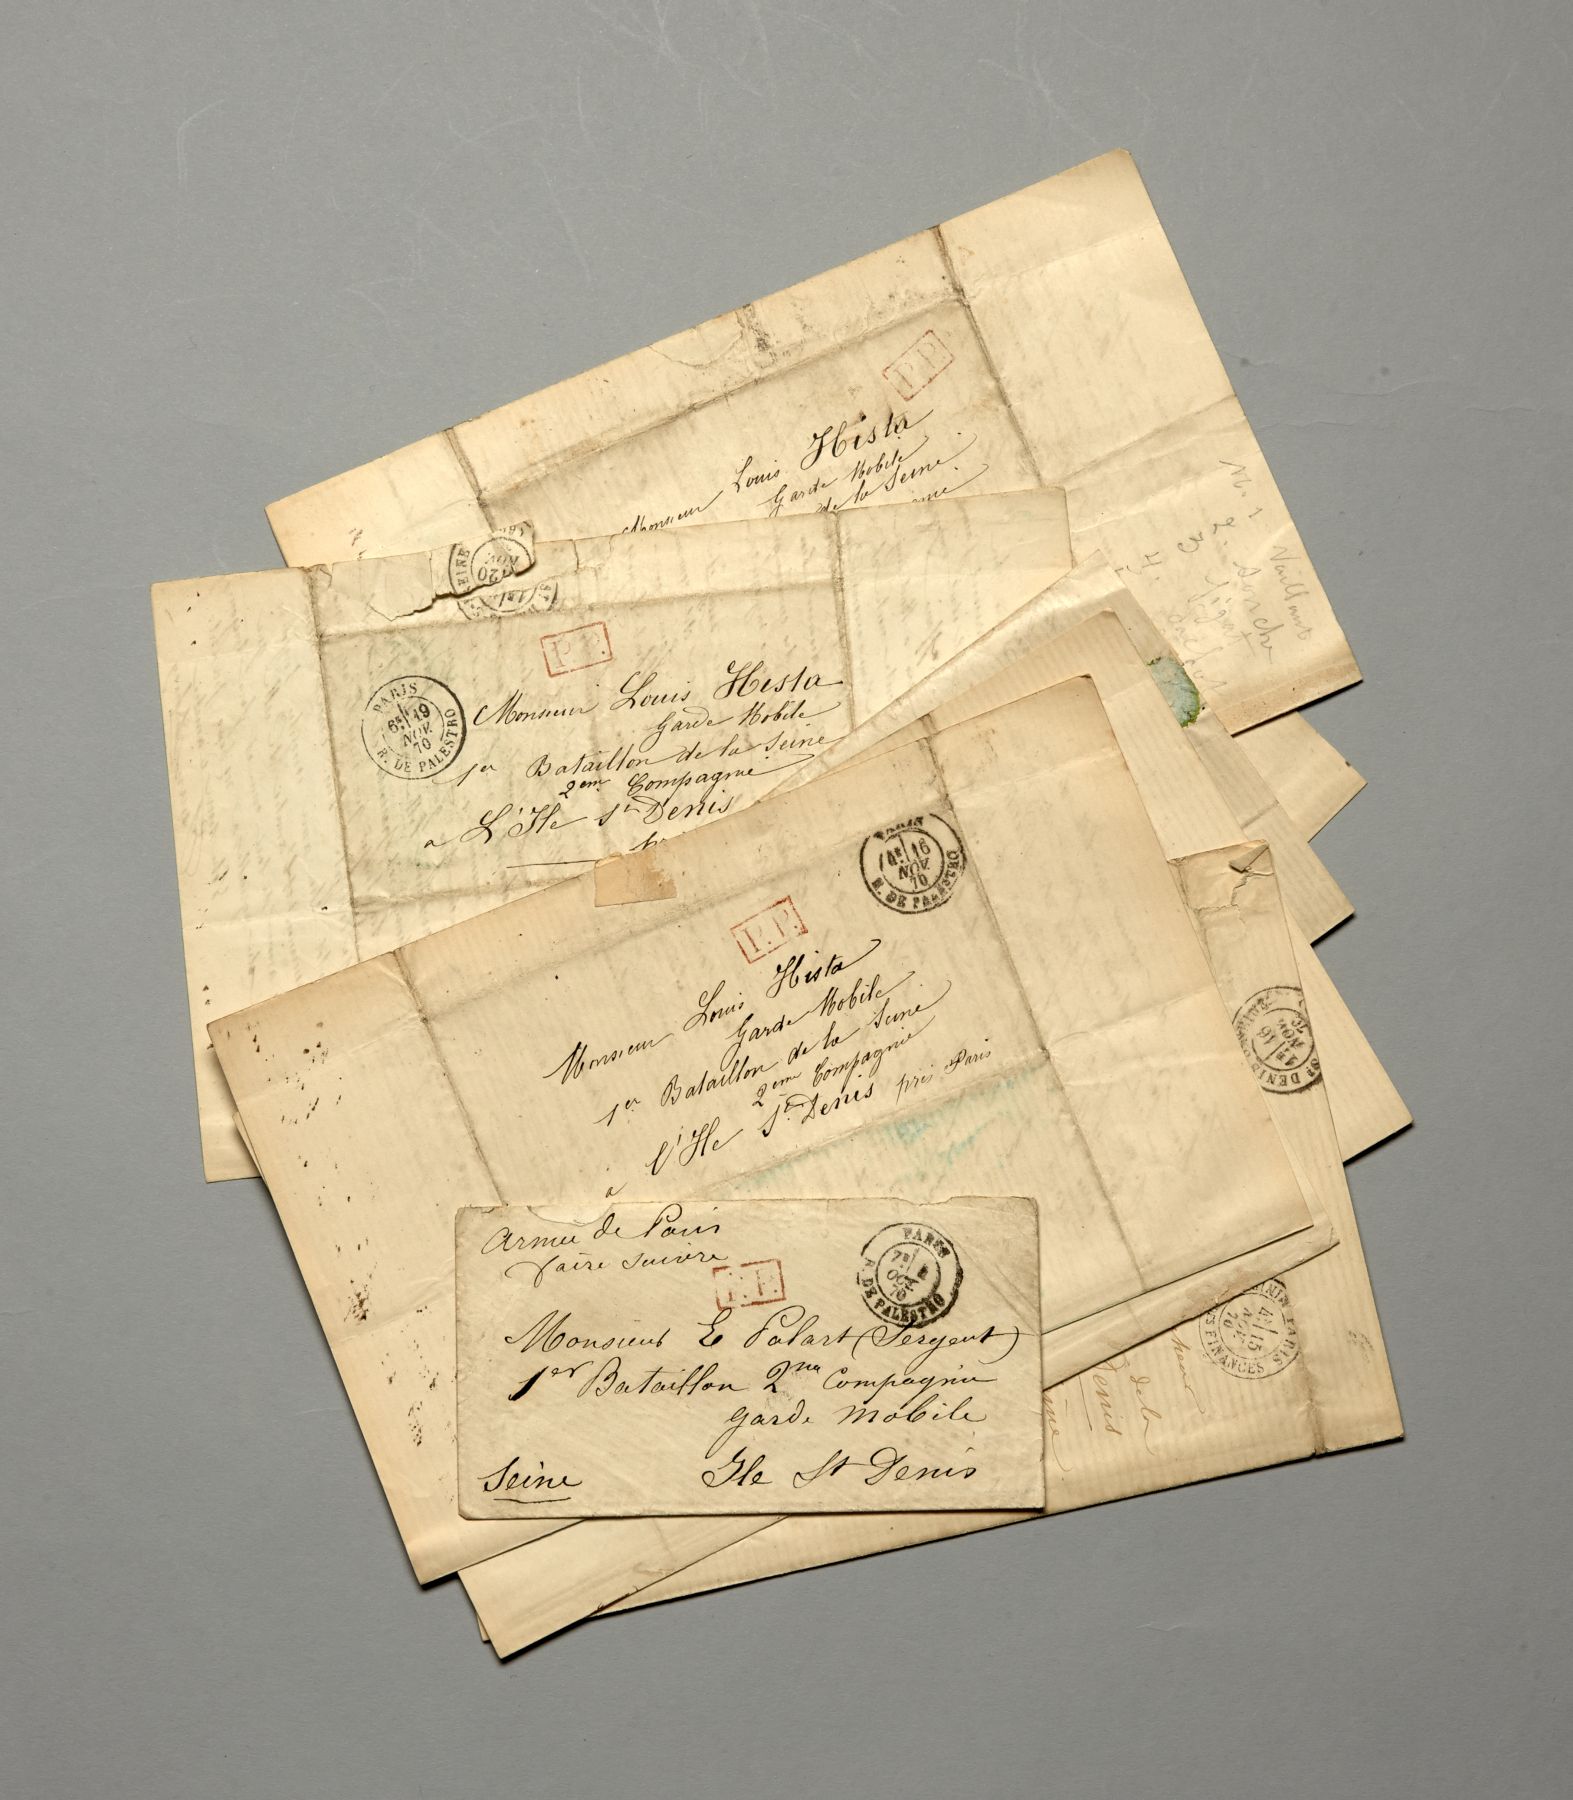 P.P.
Louis Hista
Monsieur
Garde Mobile
de la Seine
N. 1
2.
3
4.
20
NOV.
P.P.
PARIS
6E 19
NOV.
70
R. DE PALESTRO
Monsieur Louis Hista
Garde Mobile
1er Bataillon de la Seine
2eme Compagnie
a L'Ile St Denis
PARIS
4E 16
NOV.
70
R. DE PALESTRO
P.P.
Monsieur Louis Hista
Garde Mobile
1er Bataillon de la Seine
2eme Compagnie
à l'Ile St Denis près Paris
16
NOV.
ST DENIS
Armée de Paris
faire suivre
P.P.
PARIS
7E
OCT.
70
R. DE PALESTRO
Monsieur E Polart (Sergent)
1er Bataillon 2me Compagnie
garde mobile
Seine Ile St Denis
PARIS
15
NOV.
70
FINANCES
de la
Denis